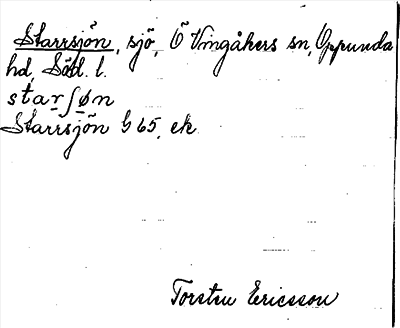 Starrsjön, sjö, Ö Vingåkers sn, Oppunda
hd, Södl. l.
starʃøn
Starrsjön G 65, ek
Torsten Ericsson